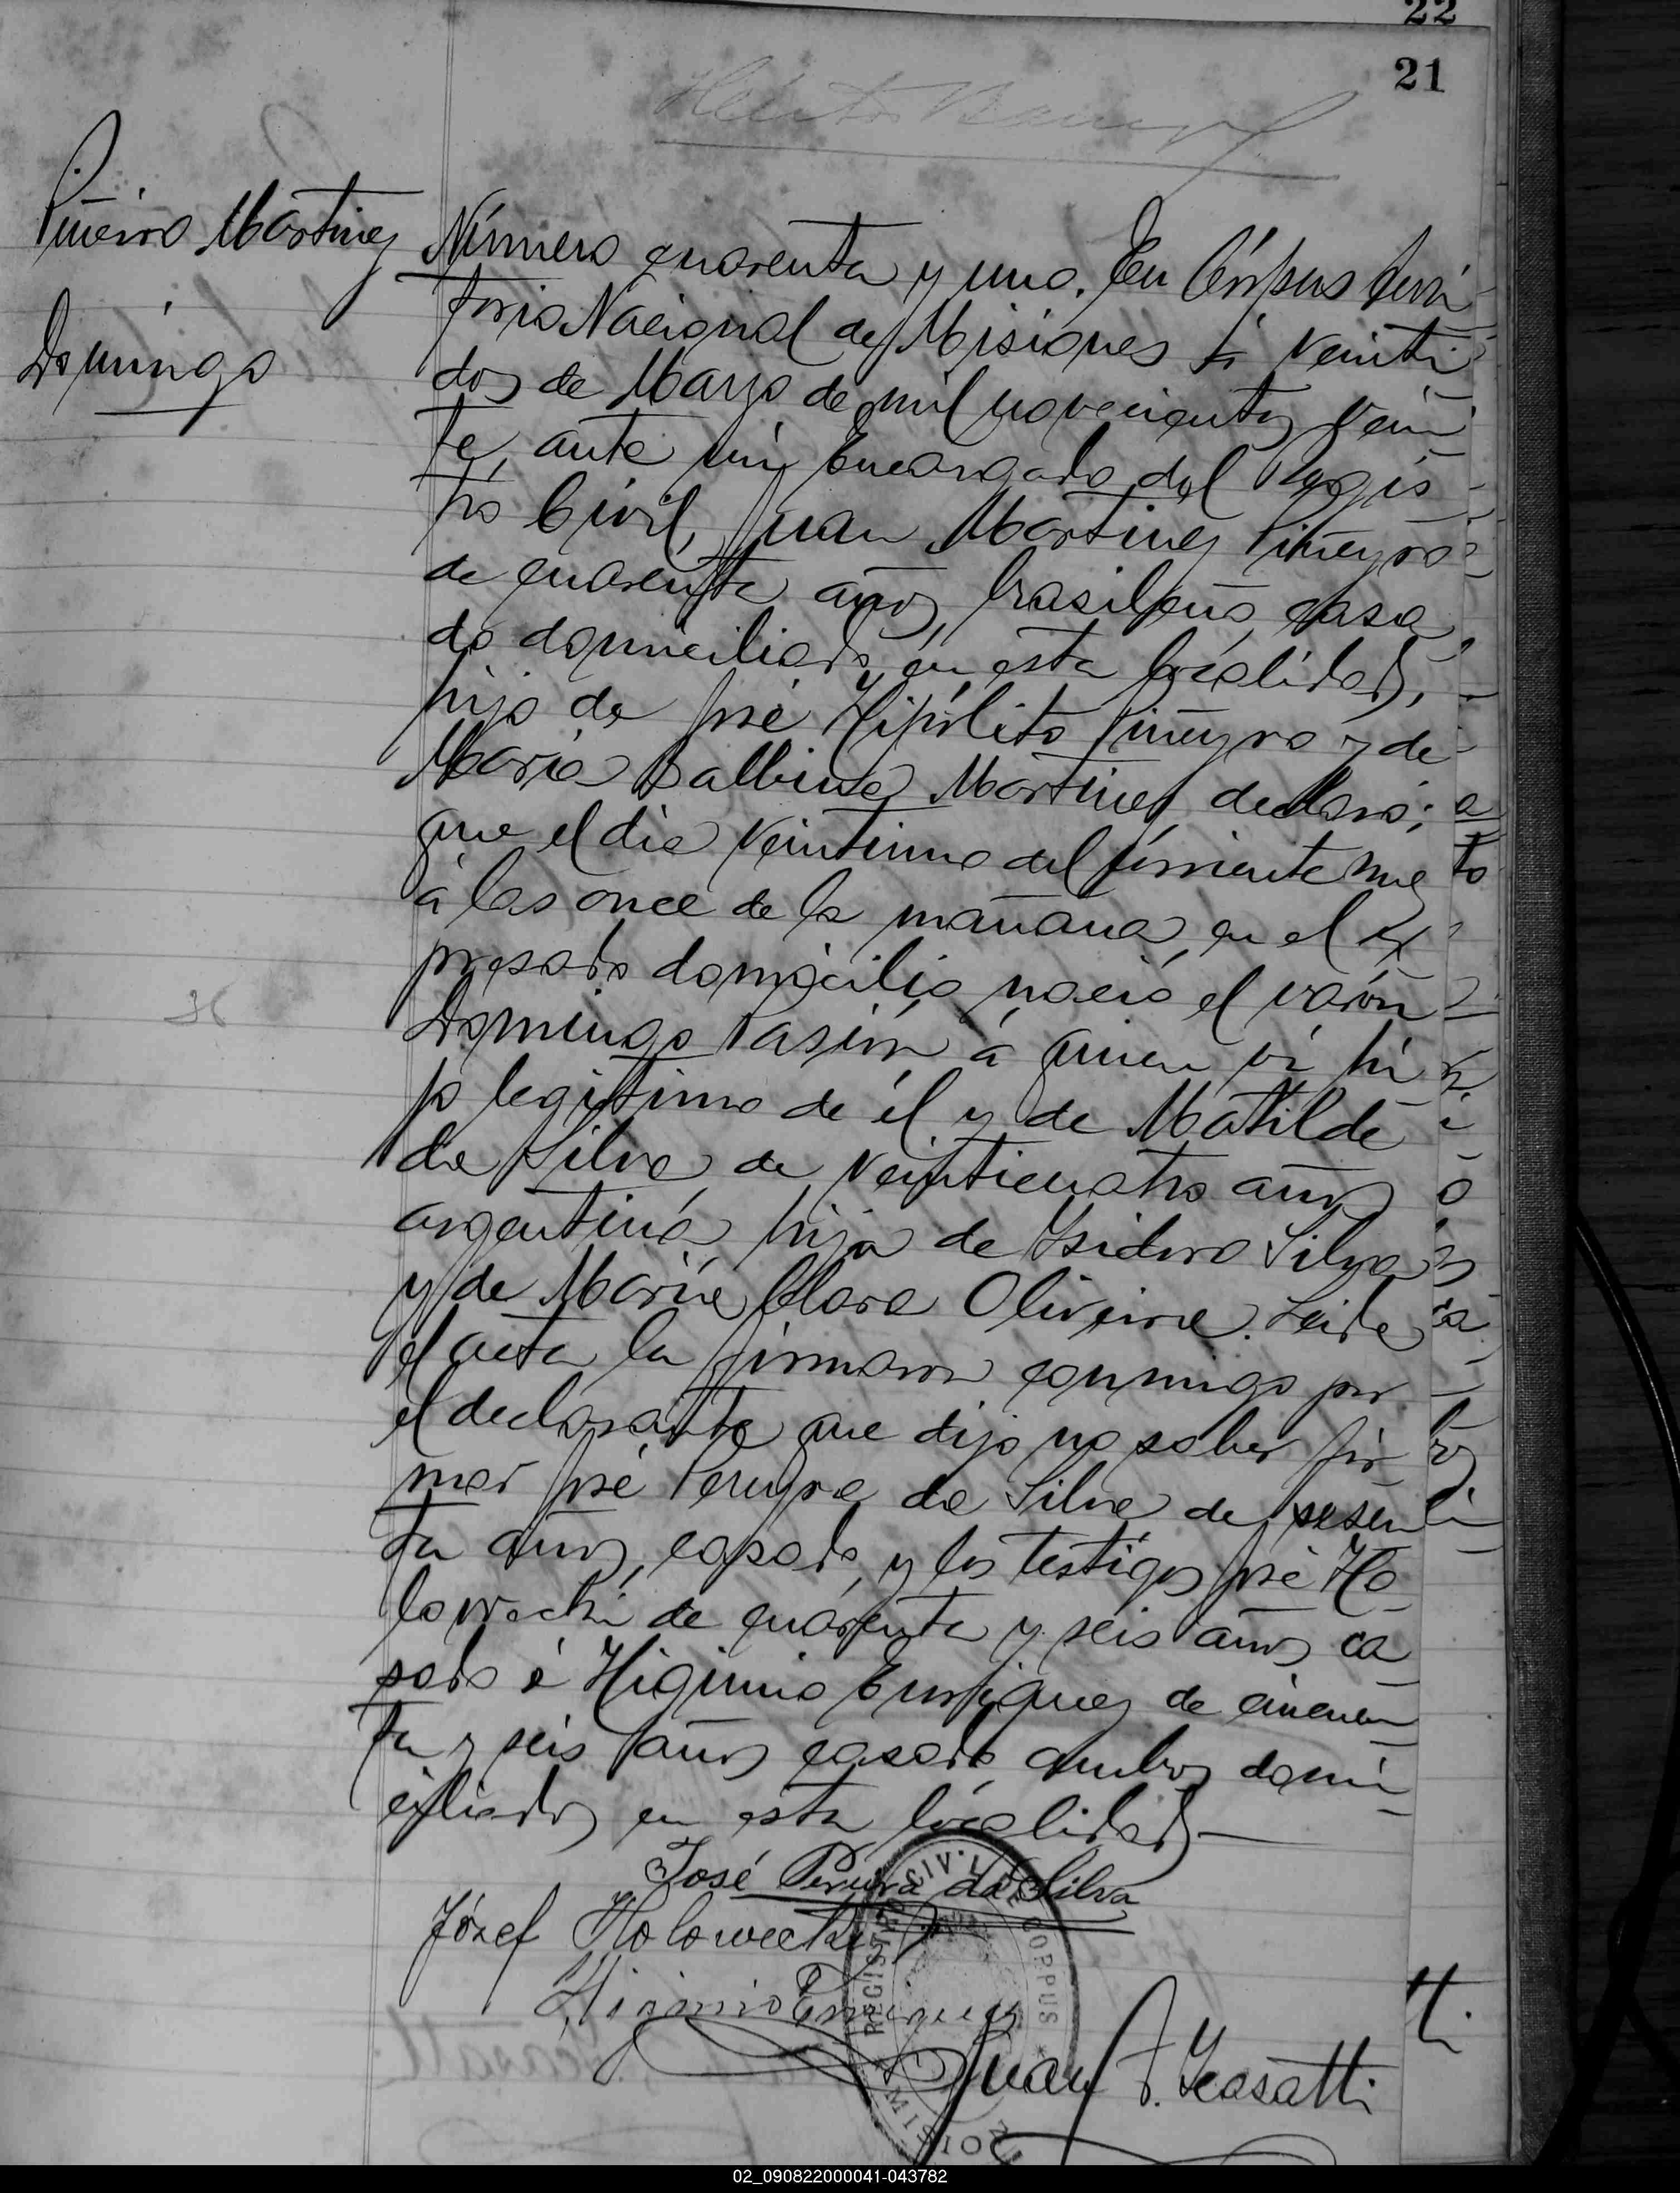 22
21
Piñeiro Martinez
Domingo
Número cuarenta y uno. En Córpus Terri
torio Nacional de Misiones á veinti
dos de Marzo de mil novecientos vein
te, ante mí, Encargado del Regis
tro Civil, Juan Martinez Piñeyro
de cuarenta años, brasileño, casa
do domiciliado en esta localidad,
hijo de José Hipólito Piñeyro y de
María Balbina Martinez declaró;
que el dia veintiuno del corriente mes
á las once de la mañana, en el ex
presado domicilio nació el varón
Domingo Pasión á quien ví hi
jo legitimo de él y de Matilde
da Silva, de veinticuatro años
argentina, hija de Isidoro Silva
y de María Clara Oliveira. Leida
el acta la firmaron conmigo por
el declarante que dijo no saber fir
mar José Pereyra da Silva de sesen
ta años, casado, y los testigos José Ho
lowecki de cuarenta y seis años ca
sado é Higinio Enriquez de cincuen
ta y seis años casado, ambos domi
ciliados en esta localidad—
José Pereira da Silva
Józef Holowecki
Higinio Enriquez
REGISTRO CIVIL DE CORPUS * MISIONES *
Juan F. Icasatti
02_090822000041-043782